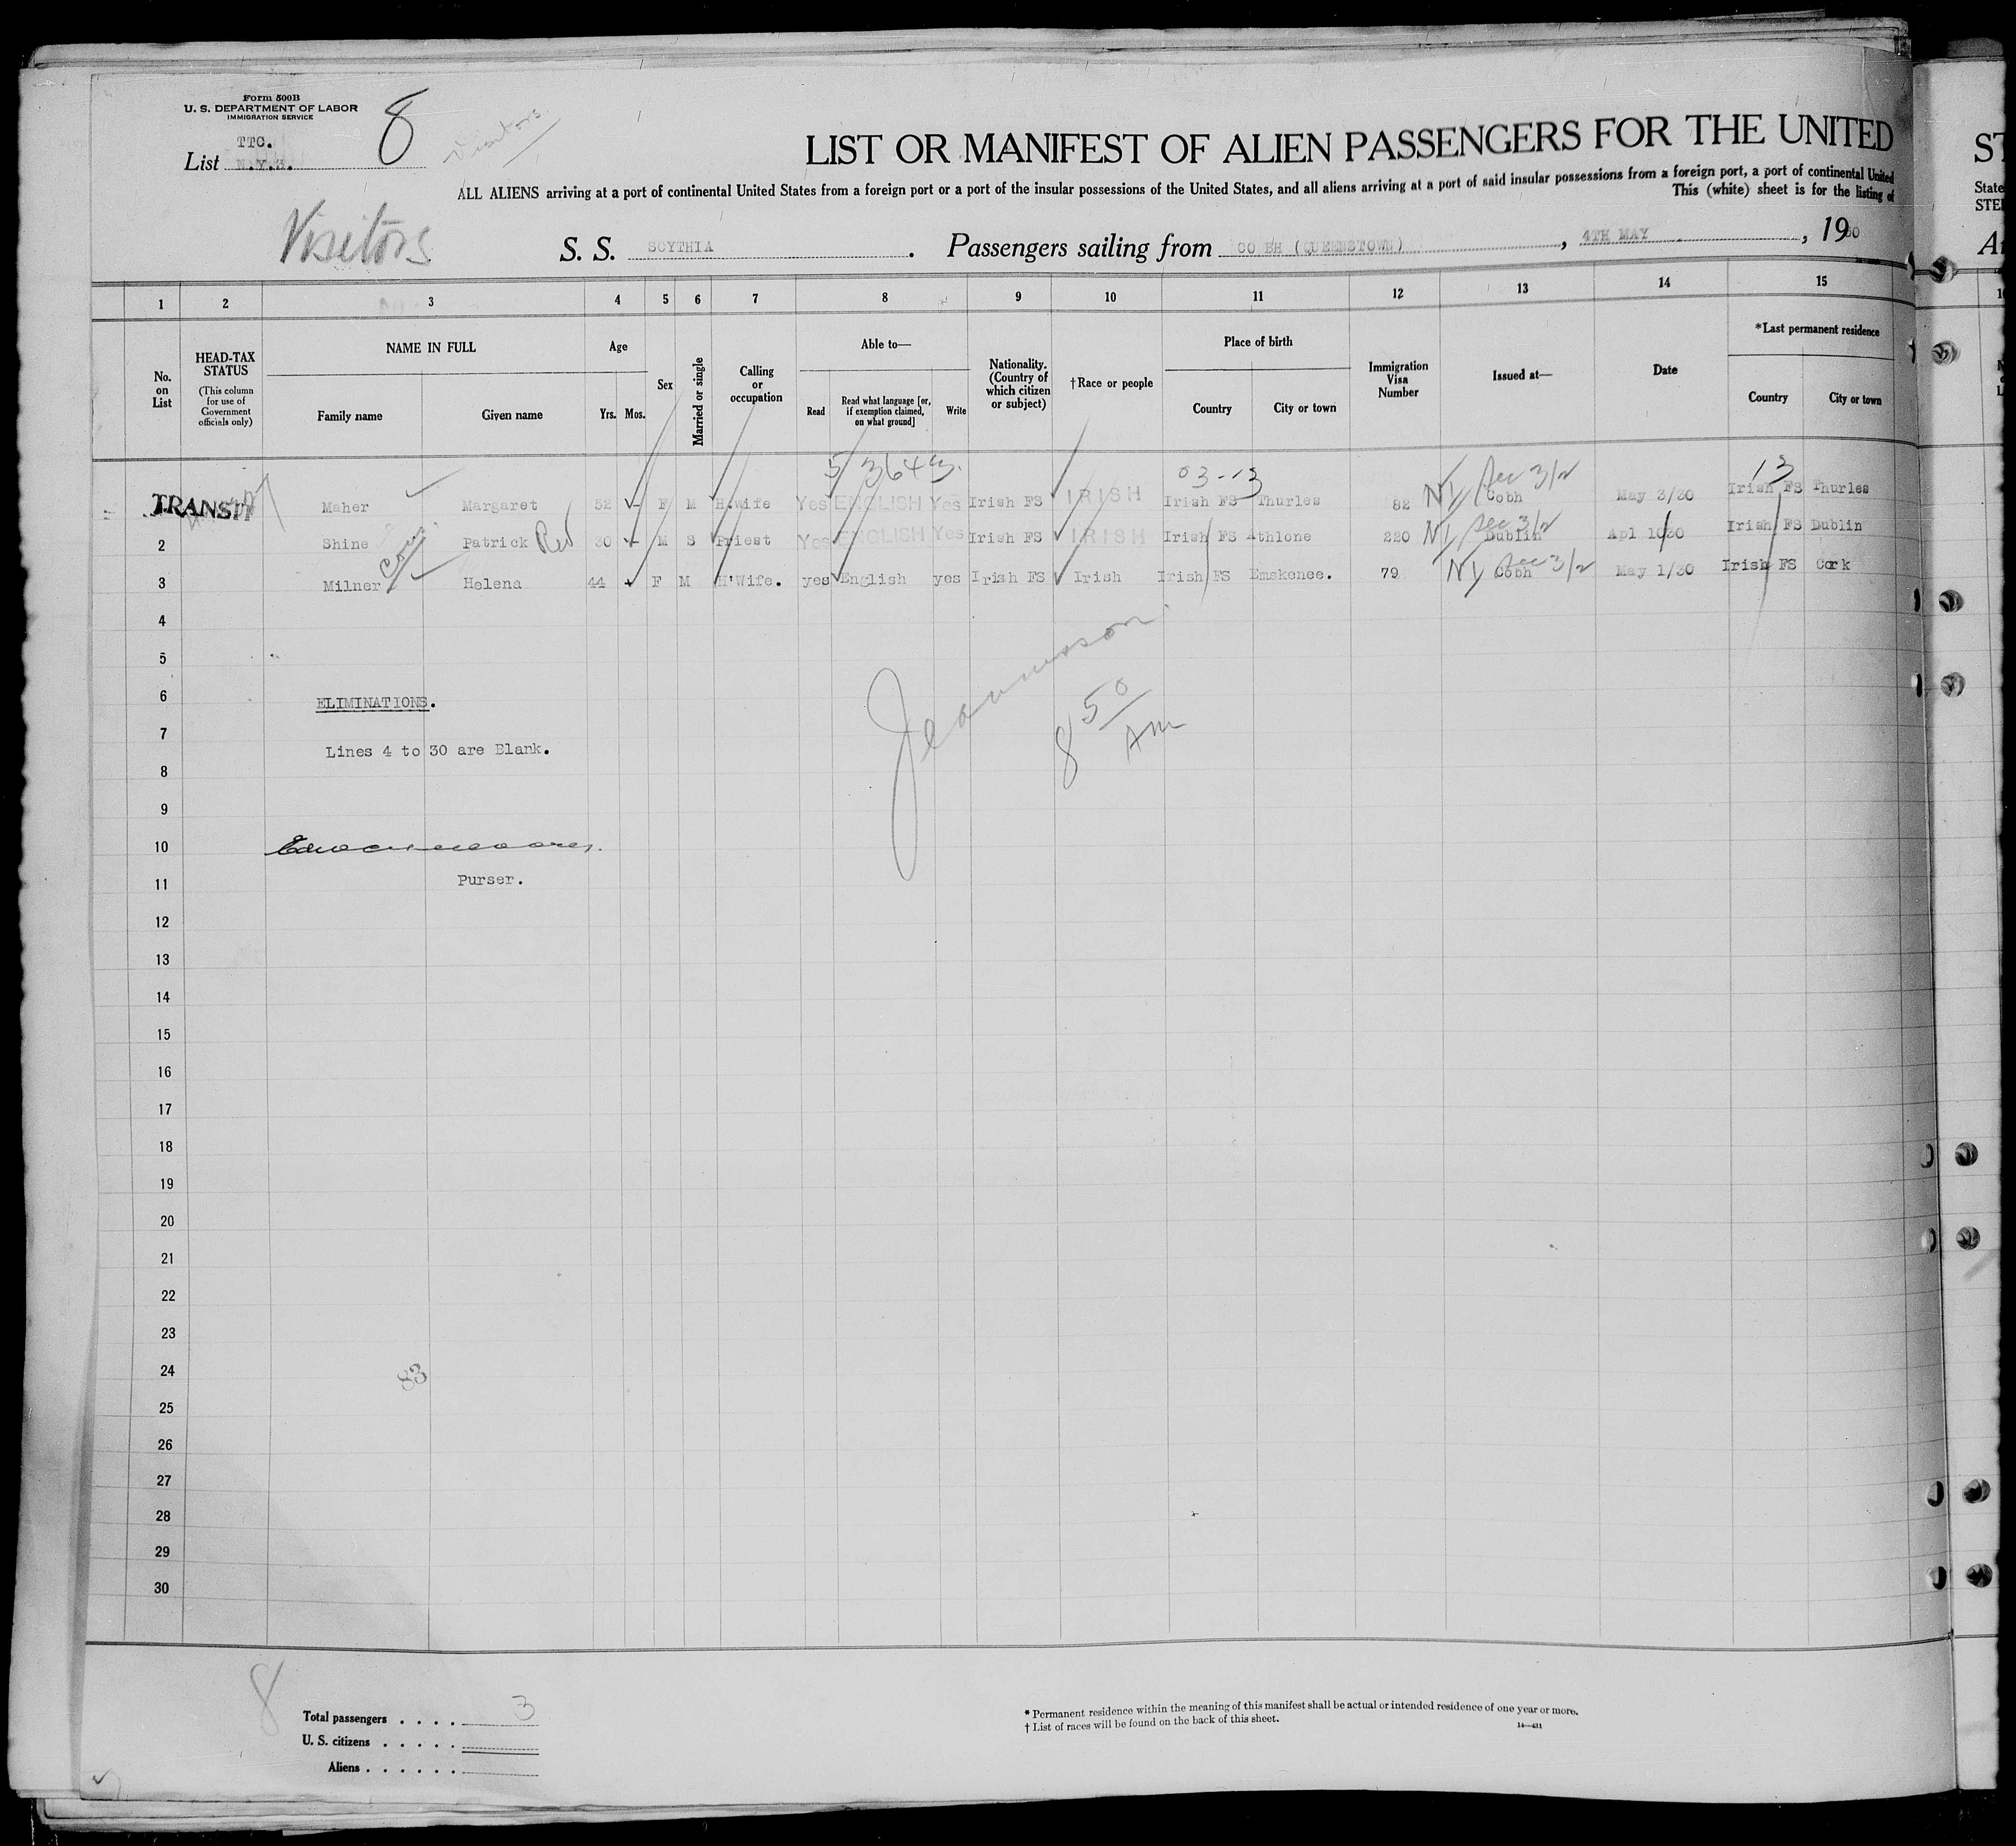 Form 500B
U. S. DEPARTMENT OF LABOR
IMMIGRATION SERVICE
TTC.
List N.Y.3.
8
Visitors
LIST OR MANIFEST OF ALIEN PASSENGERS FOR THE UNITED
ST
ALL ALIENS arriving at a port of continental United States from a foreign port or a port of the insular possessions of the United States, and all aliens arriving at a port of said insular possessions from a foreign port, a port of continental United
State
This (white) sheet is for the listing of
STE
Visitors
S. S. SCYTHIA . Passengers sailing from CO BH (QUEENSTOWN) , 4TH MAY , 1930
1 2 3 4 5 6 7 8 9 10 11 12 13 14 15
No. on List
HEAD-TAX STATUS (This column for use of Government officials only)
NAME IN FULL
Family name Given name
Age
Yrs. Mos.
Sex
Married or single
Calling or occupation
Able to—
Read
Read what language [or, if exemption claimed, on what ground]
Write
Nationality. (Country of which citizen or subject)
†Race or people
Place of birth
Country City or town
Immigration Visa Number
Issued at—
Date
*Last permanent residence
Country City or town
5/3643. 03-13 13
TRANSIT Maher Margaret 52 F M H.wife Yes ENGLISH Yes Irish FS IRISH Irish FS Thurles 82 NY Sec 3/2 Cobh May 3/30 Irish FS Thurles
2 Shine Patrick Rev 30 M S Priest Yes ENGLISH Yes Irish FS IRISH Irish FS Athlone 220 NY Sec 3/2 Dublin Apl 10/30 Irish FS Dublin
3 Milner Helena 44 F M H'Wife. yes English yes Irish FS Irish Irish FS Emskenee. 79 NY Sec 3/2 Cobh May 1/30 Irish FS Cork
4
5
6 ELIMINATIONS.
7 Lines 4 to 30 are Blank.
8 50 AM
8
9
10
11 Purser.
12
13
14
15
16
17
18
19
20
21
22
23
24 83
25
26
27
28
29
30
8
Total passengers . . . . 3
U. S. citizens . . . . .
Aliens . . . . . .
* Permanent residence within the meaning of this manifest shall be actual or intended residence of one year or more.
† List of races will be found on the back of this sheet.
14—431